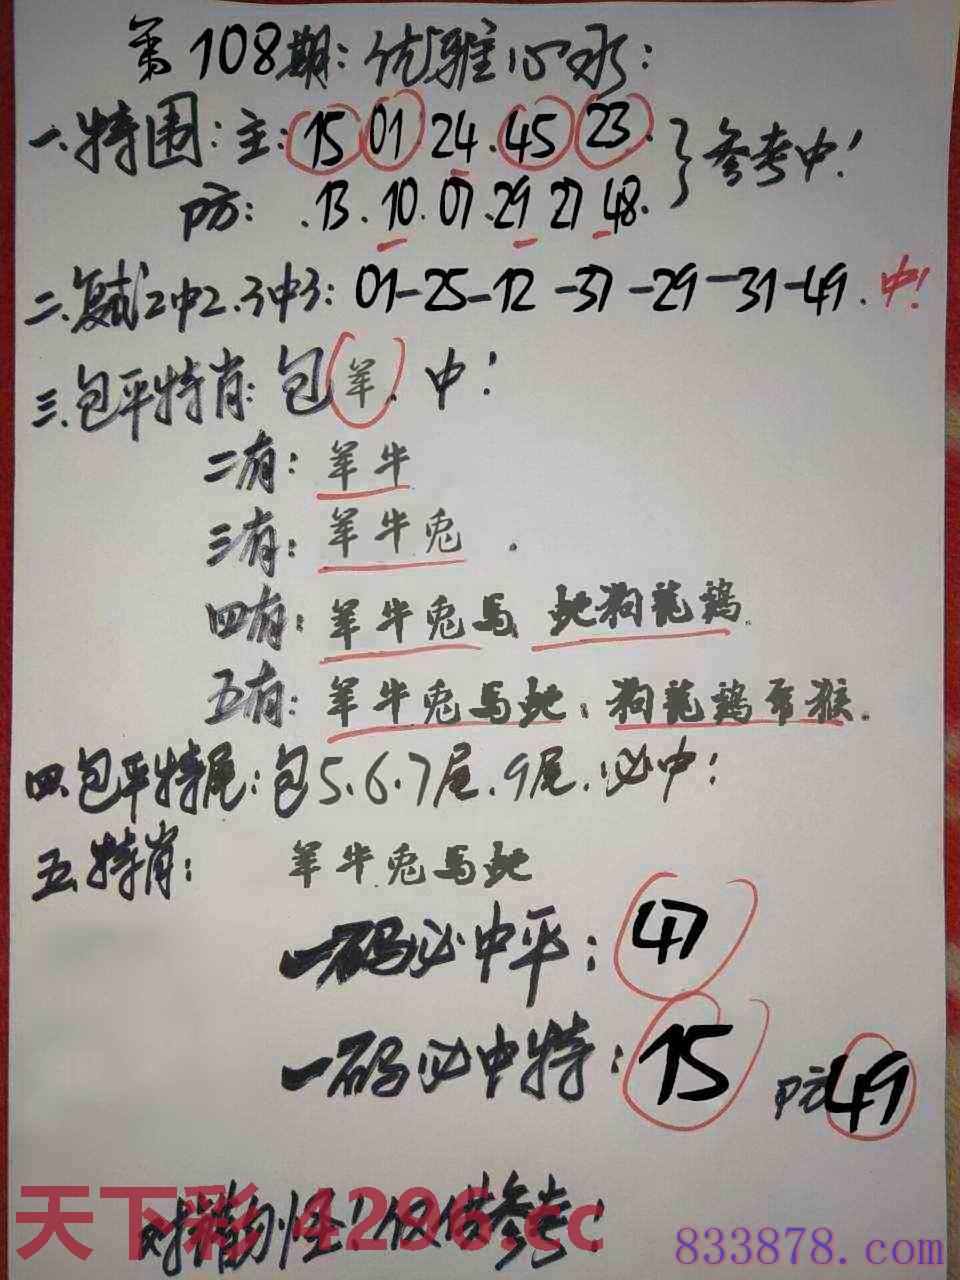 第108期:优雅心水:
一.特围:主:15 01 24.45 23. 参考中!
防:.13.10.07.29 27 48.
二.复试2中2.3中3:01-25-12-37-29-31-49.中!
三.包平特肖:包羊.中!
二有:羊牛
三有:羊牛兔.
四有:羊牛兔马 蛇狗龙鸡.
五有:羊牛兔马蛇:狗龙鸡 猴.
四.包平特尾:包5.6.7尾.9尾.必中!
五.特肖: 羊牛兔马蛇
一码必中平:47
一码必中特:15 防49
对错勿怪!仅供参考!
天下彩 4296.cc
833878.com